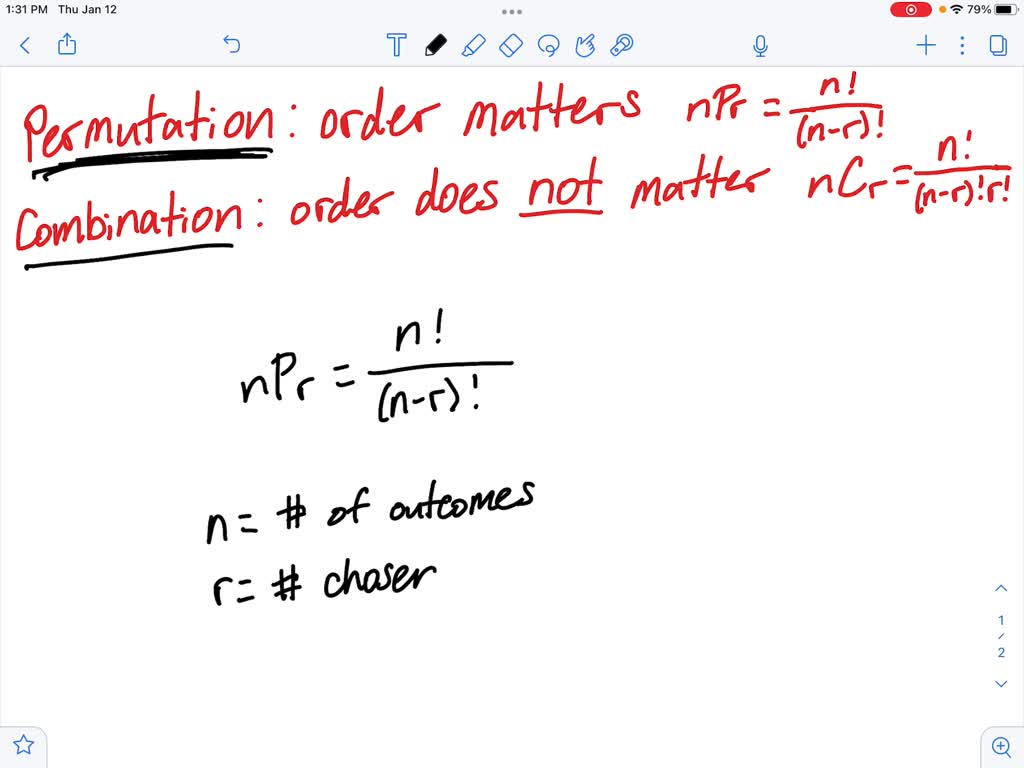 1:31 PM Thu Jan 12
79%
T
Permutation: order matters nPr = n!/(n-r)!
Combination: order does not matter nCr = n!/(n-r)!r!
nPr = n!/(n-r)!
n = # of outcomes
r = # choser
1
/
2